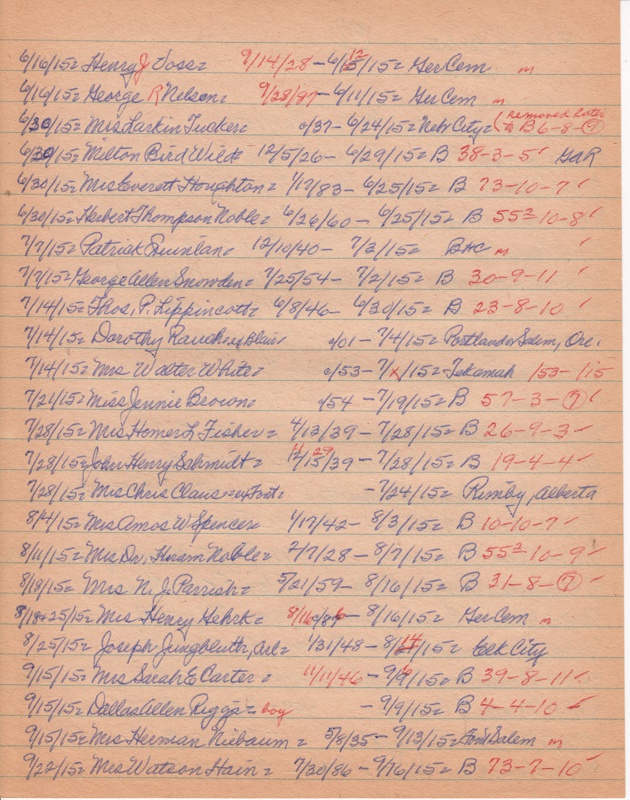 6/16/15= Henry J Voss= 9/14/28 - 6/12/15= Ger Cem m
6/16/15= George R Nelson= 9/28/87 - 6/11/15= Ger Cem m
6/30/15= Mrs Larkin Tucker= c/37 - 6/24/15= Nebr City= (removed later to B 6-8-7)
6/30/15= Milton Bird Wilds 12/5/26 - 6/29/15= B 38-3-5 ✓ GAR
6/30/15= Mrs Everett Houghton= 1/17/83 - 6/25/15= B 73-10-7 ✓
6/30/15= Herbert Thompson Noble= 6/26/60 - 6/25/15= B 55²-10-8 ✓
7/7/15= Patrick Quinlan= 12/10/40 - 7/3/15= BHC m ✓
7/7/15= George Allen Snowden= 7/25/54 - 7/2/15= B 30-9-11 ✓
7/14/15= Thos. P. Lippincott= 6/8/46 - 6/30/15= B 23-8-10 ✓
7/14/15= Dorothy Rauch=ex Blair c/01 - 7/4/15= Portland or Salem, Ore.
7/14/15= Mrs Walter White= c/53 - 7/x/15= Tekamah /53- /15
7/21/15= Miss Jennie Brown= c/54 - 7/19/15= B 57-3-7 ✓
7/28/15= Mrs Homer L Fisher= 4/13/39 - 7/28/15= B 26-9-3 ✓
7/28/15= John Henry Schmidt= 11/29/39 - 7/28/15= B 19-4-4 ✓
7/28/15= Mrs Chris Claus=ex Font= - 7/24/15= Rimby, Alberta
8/4/15= Mrs Amos W Spencer= 1/17/42 - 8/3/15= B 10-10-7 ✓
8/11/15= Mrs Dr. Hiram Noble= 2/7/28 - 8/7/15= B 55²-10-9 ✓
8/18/15= Mrs N. J. Parrish= 5/21/59 - 8/16/15= B 31-8-7 ✓
8/18+25/15= Mrs Henry Gehrk= - 8/16/15= Ger Cem m
8/25/15= Joseph Jungbluth, 1/31/48 - 8/14/15= Elk City
9/15/15= Mrs Sarah E Carter= 11/11/46 - 9/9/15= B 39-8-11 ✓
9/15/15= Dallas Allen Riggs= boy - 9/9/15= B 4-4-10 ✓
9/15/15= Mrs Herman Niebaum= 5/8/35 - 9/13/15= Salem m
9/22/15= Mrs Watson Hain= 7/30/86 - 9/16/15= B 73-7-10 ✓